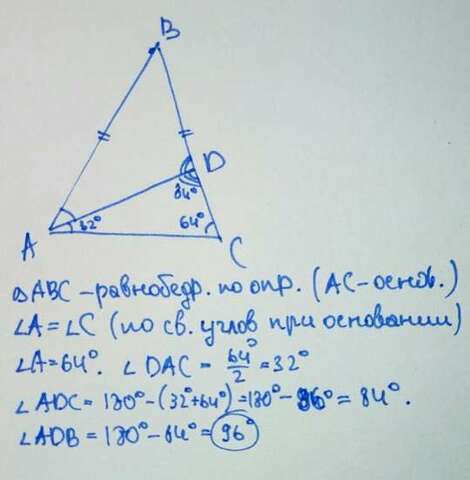 B
D
84°
A
32°
64°
C
△ABC – равнобедр. по опр. (AC – основ.)
∠A = ∠C (по св. углов при основании)
∠A = 64°. ∠DAC = 64°/2 = 32°
∠ADC = 180° – (32° + 64°) = 180° – 96° = 84°.
∠ADB = 180° – 84° = 96°